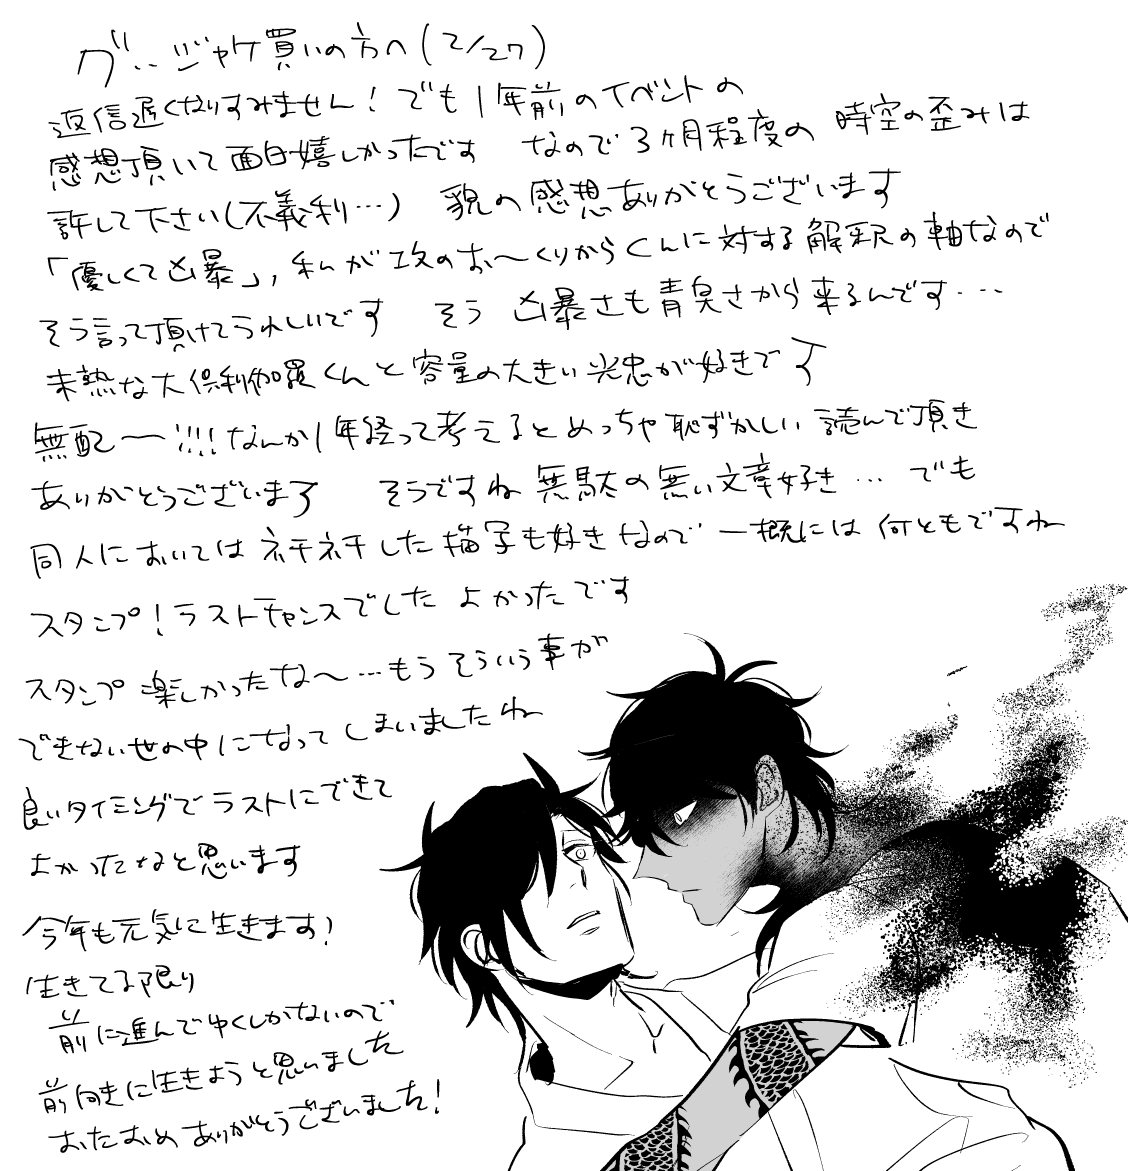 グ…ジャケ買いの方へ(2/27)
返信遅くなりすみません!でも1年前のイベントの
感想頂いて面白嬉しかったです なので3ヶ月程度の時空の歪みは
許して下さい(不義利…) 貌の感想ありがとうございます
「優しくて凶暴」,私が攻のお〜くりからくんに対する解釈の軸なので
そう言って頂けてうれしいです そう 凶暴さも青臭さから来るんです…
未熟な大倶利伽羅くんと容量の大きい光忠が好きです
無配〜!!!なんか1年経って考えるとめっちゃ恥ずかしい 読んで頂き
ありがとうございます そうですね無駄の無い文章好き…でも
同人においてはネチネチした描写も好きなので一概には何ともですね
スタンプ!ラストチャンスでした よかったです
スタンプ楽しかったな〜…もうそういう事が
できない世の中になってしまいましたね
良いタイミングでラストにできて
よかったなと思います
今年も元気に生きます!
生きてる限り
前に進んでゆくしかないので
前向きに生きようと思いました
おたおめありがとうございました!